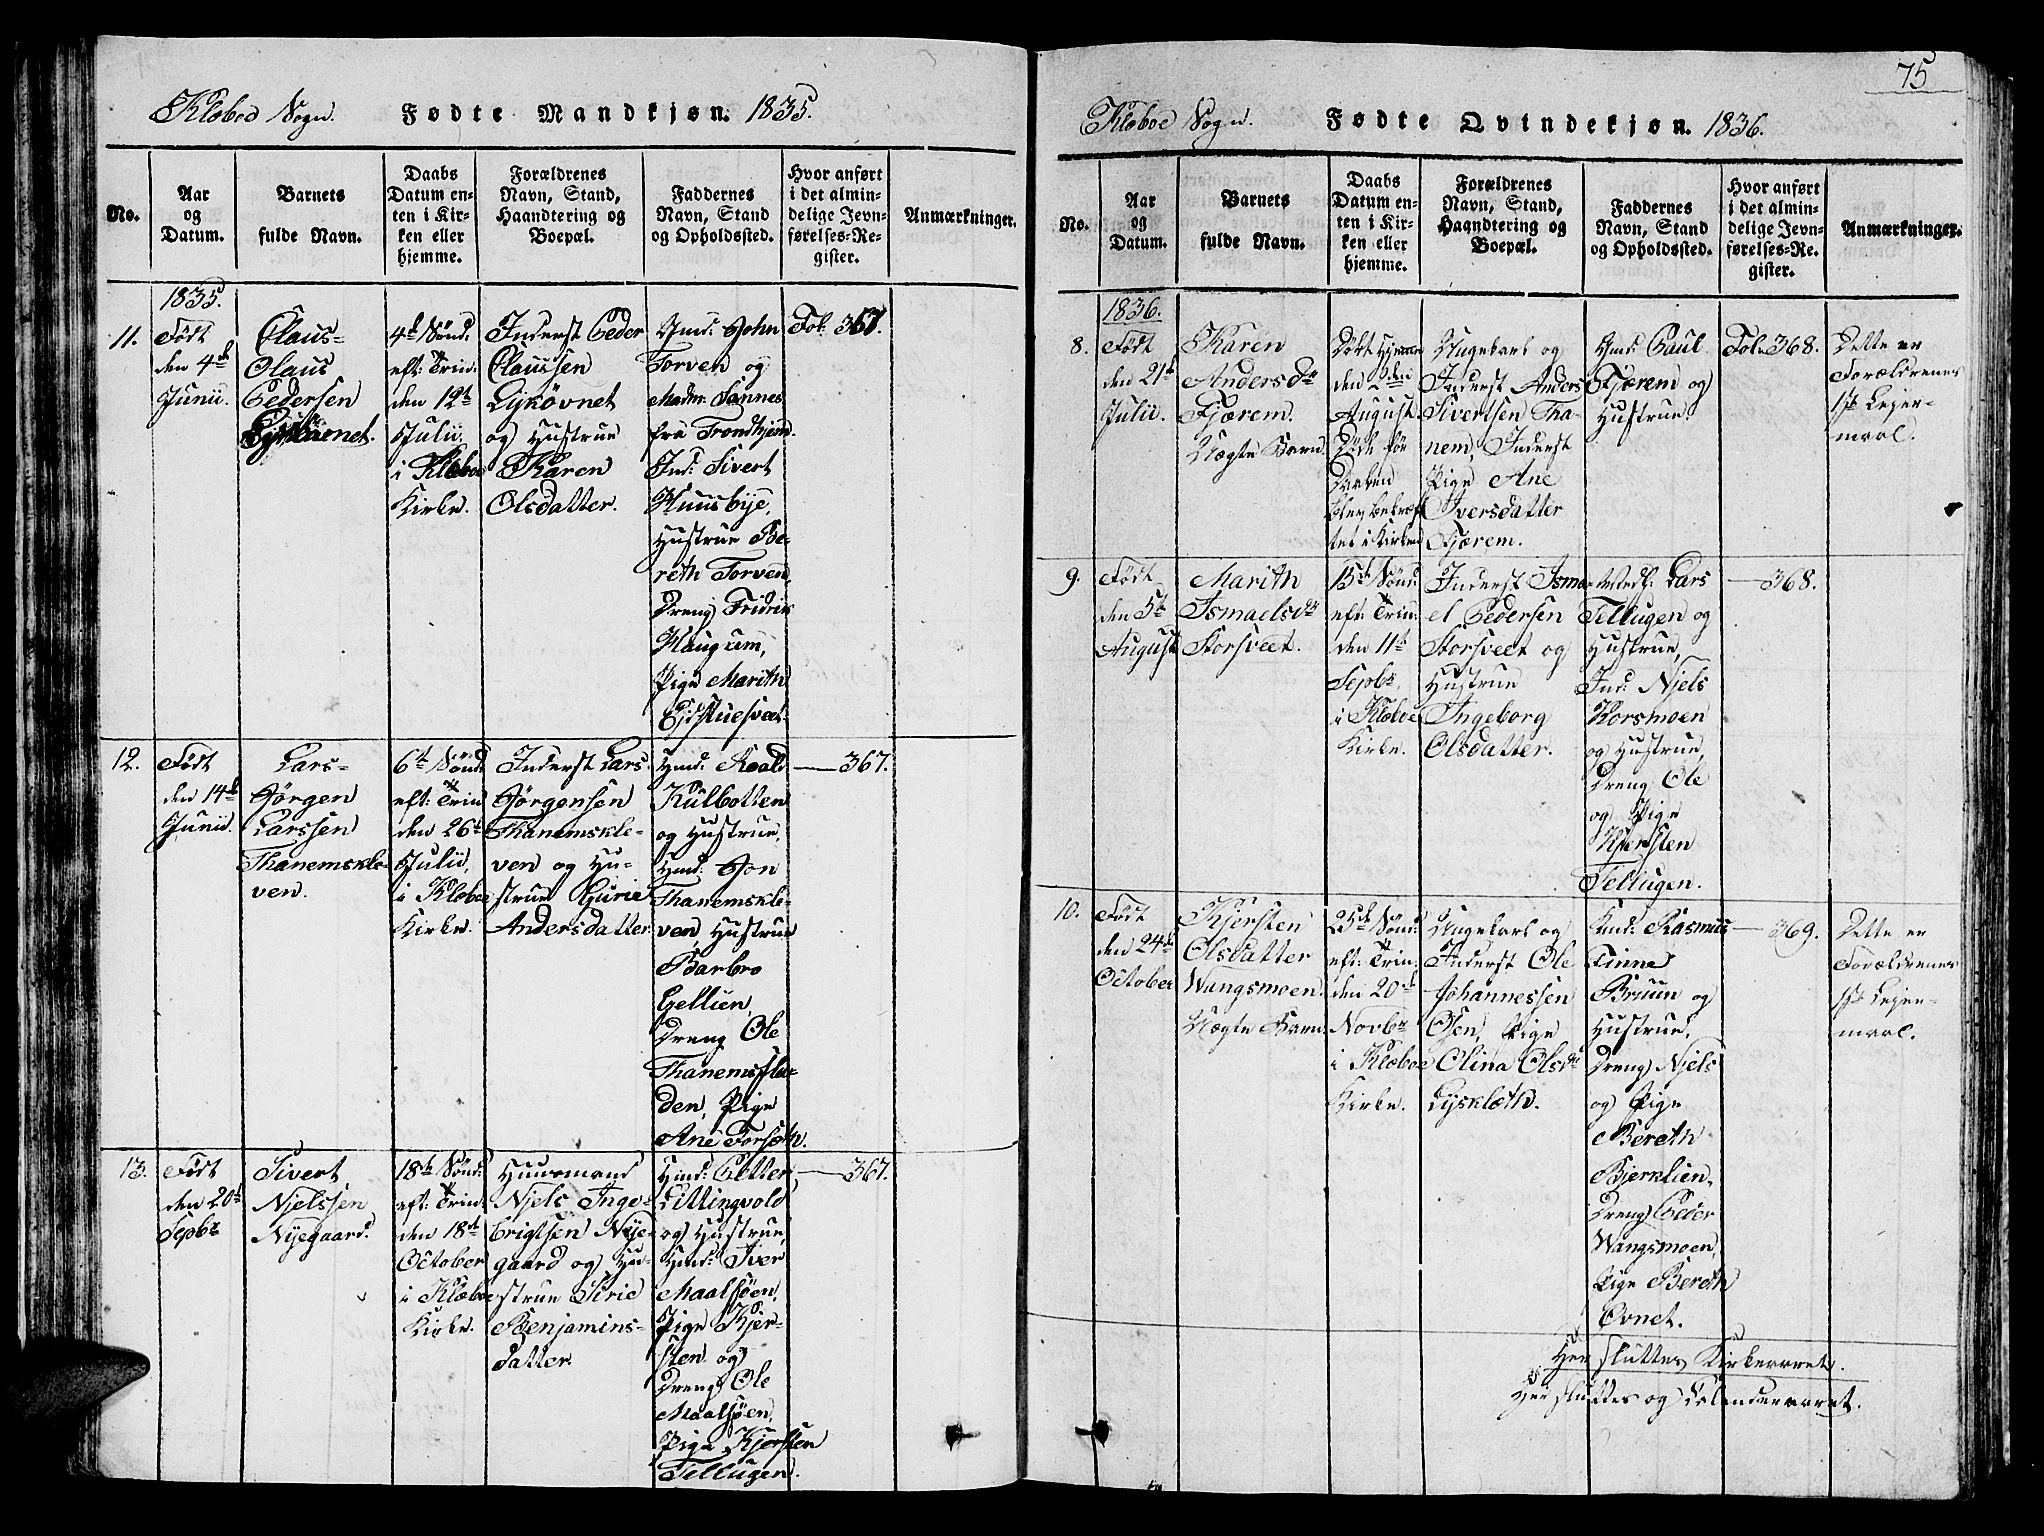 Klæboe Sogn. Fødte Mandkjøn. 1835.
No.
Aar
og
Datum.
Barnets
fulde Navn.
Daabs
Datum en-
ten i Kir-
ken eller
hjemme.
Forældrenes
Navn, Stand,
Haandtering og
Boepæl.
Faddernes
Navn, Stand
og Opholdssted.
Hvor anført
i det almin-
delige Jevn-
førelses-Re-
gister.
Anmærkninger.
1835.
11.
Født
den 4de
Junii.
Claus
Olaus
Pedersen
4de Sønd:
eft: Trin:
den 12te
Julii
i Klæboe
Kirke.
Inderst Peder
Claussen
Lysøvnet
og Hustrue
Karen
Olsdatter.
Gmd: John
Torven og
Madm: Sannes
fra Trondhjem.
Ind: Sivert
Huusbye,
Hustrue Be-
reth Torven,
Dreng Fridrik
Haugrem,
Pige Marith
Eidstuesveet.
Fol: 367.
12.
Født
den 14de
Junii.
Lars
Jørgen
Larssen
Thanemskle-
ven.
6te Sønd:
eft: Trin:
den 26te
Julii,
i Klæboe
Kirke.
Inderst Lars
Jørgensen
Thanemskle-
ven og Hu-
strue Gurie
Andersdatter.
Hmd: Roald
Kulbotten
og Hustrue,
Hmd: Jon
Thanemskle-
ven, Hustrue
Barbro
Gellien,
Dreng Ole
Thanemsflaa-
den, Pige
Ane Forseth.
367.
13.
Født
den 20de
Sepbr
Sivert
Njelssen
Nyegaard.
18de Sønd:
eft: Trin:
den 18de
October
i Klæboe
Kirke.
Huusmand
Njels Inge-
brigtsen Nye-
gaard og Hu-
strue Sirie
Benjamins-
datter.
Hmd: Petter
Littingvold
og Hustrue,
Hmd: Iver
Maalsøen,
Pige Kjer-
sten og
Dreng Ole
Maalsøen,
Pige Kjersten
Tellugen.
367.
75
Klæboe Sogn. Fødte Qvindekjøn. 1836.
No.
Aar
og
Datum.
Barnets
fulde Navn.
Daabs
Datum en-
ten i Kir-
ken eller
hjemme.
Forældrenes
Navn, Stand,
Haandtering og
Boepæl.
Faddernes
Navn, Stand
og Opholdssted.
Hvor anført
i det almin-
delige Jevn-
førelses-Re-
gister.
Anmærkninger.
1836.
8.
Født
den 21de
Julii.
Karen
Andersdr
Fjærem.
Uægte Barn.
Døbt hjemme
den 2den
August.
Døde før
Daaben
blev bekræf-
tet i Kirken
Ungekarl og
Inderst Anders
Sivertsen Tha-
nem, Inderst
Pige Ane
Iversdatter
Fjærem.
Gmd: Paul
Fjærem og
Hustrue.
Fol: 368.
Dette er
Forældrenes
1ste Lejer-
maal.
9.
Født
den 5te
August
Marith
Ismaelsdr
Storsveet.
15de Sønd:
eft: Trin:
den 11te
Sepbr.
i Klæboe
Kirke.
Inderst Isma-
el Pedersen
Storsveet og
Hustrue
Ingeborg
Olsdatter.
Lars
Tellugen og
Hustrue,
Ind: Njels
Korsmoen
og Hustrue,
Dreng Ole
og Pige
Kjersten
Tellugen.
368.
10.
Født
den 24de
October
Kjersten
Olsdatter
Wangsmoen.
Uægte Barn.
25de Sønd:
eft: Trin:
den 20de
Novbr
i Klæboe
Kirke.
Ungekarl og
Inderst Ole
Johannessen
Osen, Pige
Olina Olsdr
Lyskleth.
Hmd: Rasmus
Tinne
Bruun og
Hustrue,
Dreng Njels
og Pige
Bereth
Bjerklien,
Dreng Peder
Wangsmoen,
Pige Bereth
Ovnet.
369.
Dette er
Forældrenes
1ste Lejer-
maal.
Her sluttes Kirkeaaret.
Her sluttes og Calenderaaret.